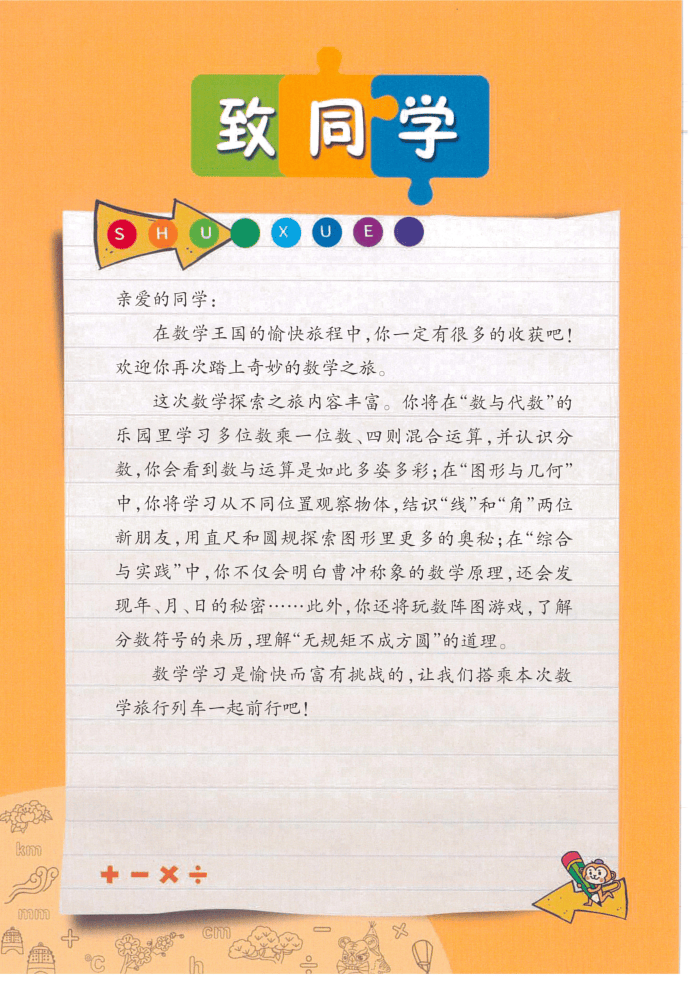 致同学
SHU XUE
亲爱的同学：
在数学王国的愉快旅程中，你一定有很多的收获吧！
欢迎你再次踏上奇妙的数学之旅。
这次数学探索之旅内容丰富。你将在“数与代数”的
乐园里学习多位数乘一位数、四则混合运算，并认识分
数，你会看到数与运算是如此多姿多彩；在“图形与几何”
中，你将学习从不同位置观察物体，结识“线”和“角”两位
新朋友，用直尺和圆规探索图形里更多的奥秘；在“综合
与实践”中，你不仅会明白曹冲称象的数学原理，还会发
现年、月、日的秘密……此外，你还将玩数阵图游戏，了解
分数符号的来历，理解“无规矩不成方圆”的道理。
数学学习是愉快而富有挑战的，让我们搭乘本次数
学旅行列车一起前行吧！
km
+ − × ÷
mm
+ cm ×
°C h ÷